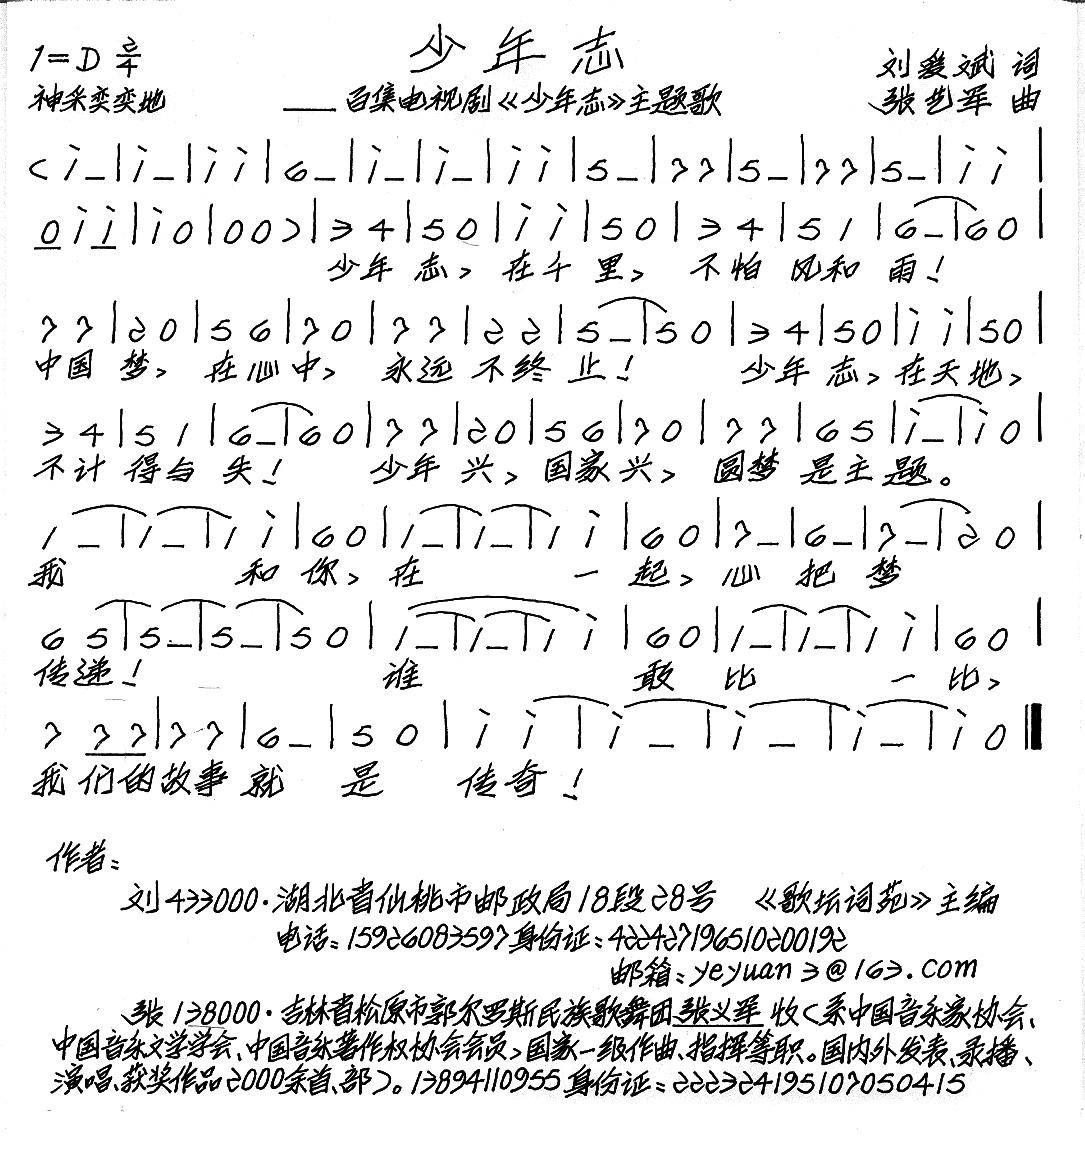 少年志
1=D 2/4
刘爱斌 词
神采奕奕地
——百集电视剧《少年志》主题歌
张艺军 曲
( i̇ – | i̇ – | i̇ i̇ | 6 – | i̇ – | i̇ – | i̇ i̇ | 5 – | 7 7 | 5 – | 7 7 | 5 – | i̇ i̇ |
0 i̇ i̇ | i̇ 0 | 0 0 ) | 3 4 | 5 0 | i̇ i̇ | 5 0 | 3 4 | 5 1 | 6 – | 6 0 |
少年 志, 在千 里, 不怕 风和 雨!
7 7 | 2 0 | 5 6 | 7 0 | 7 7 | 2 2 | 5 – | 5 0 | 3 4 | 5 0 | i̇ i̇ | 5 0 |
中国 梦, 在心 中, 永远 不终 止! 少年 志, 在天 地,
3 4 | 5 1 | 6 – | 6 0 | 7 7 | 2 0 | 5 6 | 7 0 | 7 7 | 6 5 | i̇ – | i̇ 0 |
不计 得与 失! 少年 兴, 国家 兴, 圆梦 是主 题。
1 – | 1 – | 1 i̇ | 6 0 | 1 – | 1 – | 1 i̇ | 6 0 | 7 – | 6 – | 7 – | 2 0 |
我 和 你, 在 一 起, 心 把 梦
6 5 | 5 – | 5 – | 5 0 | 1 – | 1 – | 1 i̇ | 6 0 | 1 – | 1 – | 1 i̇ | 6 0 |
传递! 谁 敢 比 一 比,
7 7 7 | 7 7 | 6 – | 5 0 | i̇ i̇ | i̇ – | i̇ – | i̇ – | i̇ 0 ‖
我们的故事 就 是 传奇!
作者:
刘433000·湖北省仙桃市邮政局18段28号 《歌坛词苑》主编
电话:15926083597身份证:422427196510200192
邮箱:yeyuan3@163.com
张138000·吉林省松原市郭尔罗斯民族歌舞团张义军 收(系中国音乐家协会、
中国音乐文学学会、中国音乐著作权协会会员,国家一级作曲、指挥等职。国内外发表、录播、
演唱、获奖作品2000余首、部)。13894110955身份证:222324195107050415